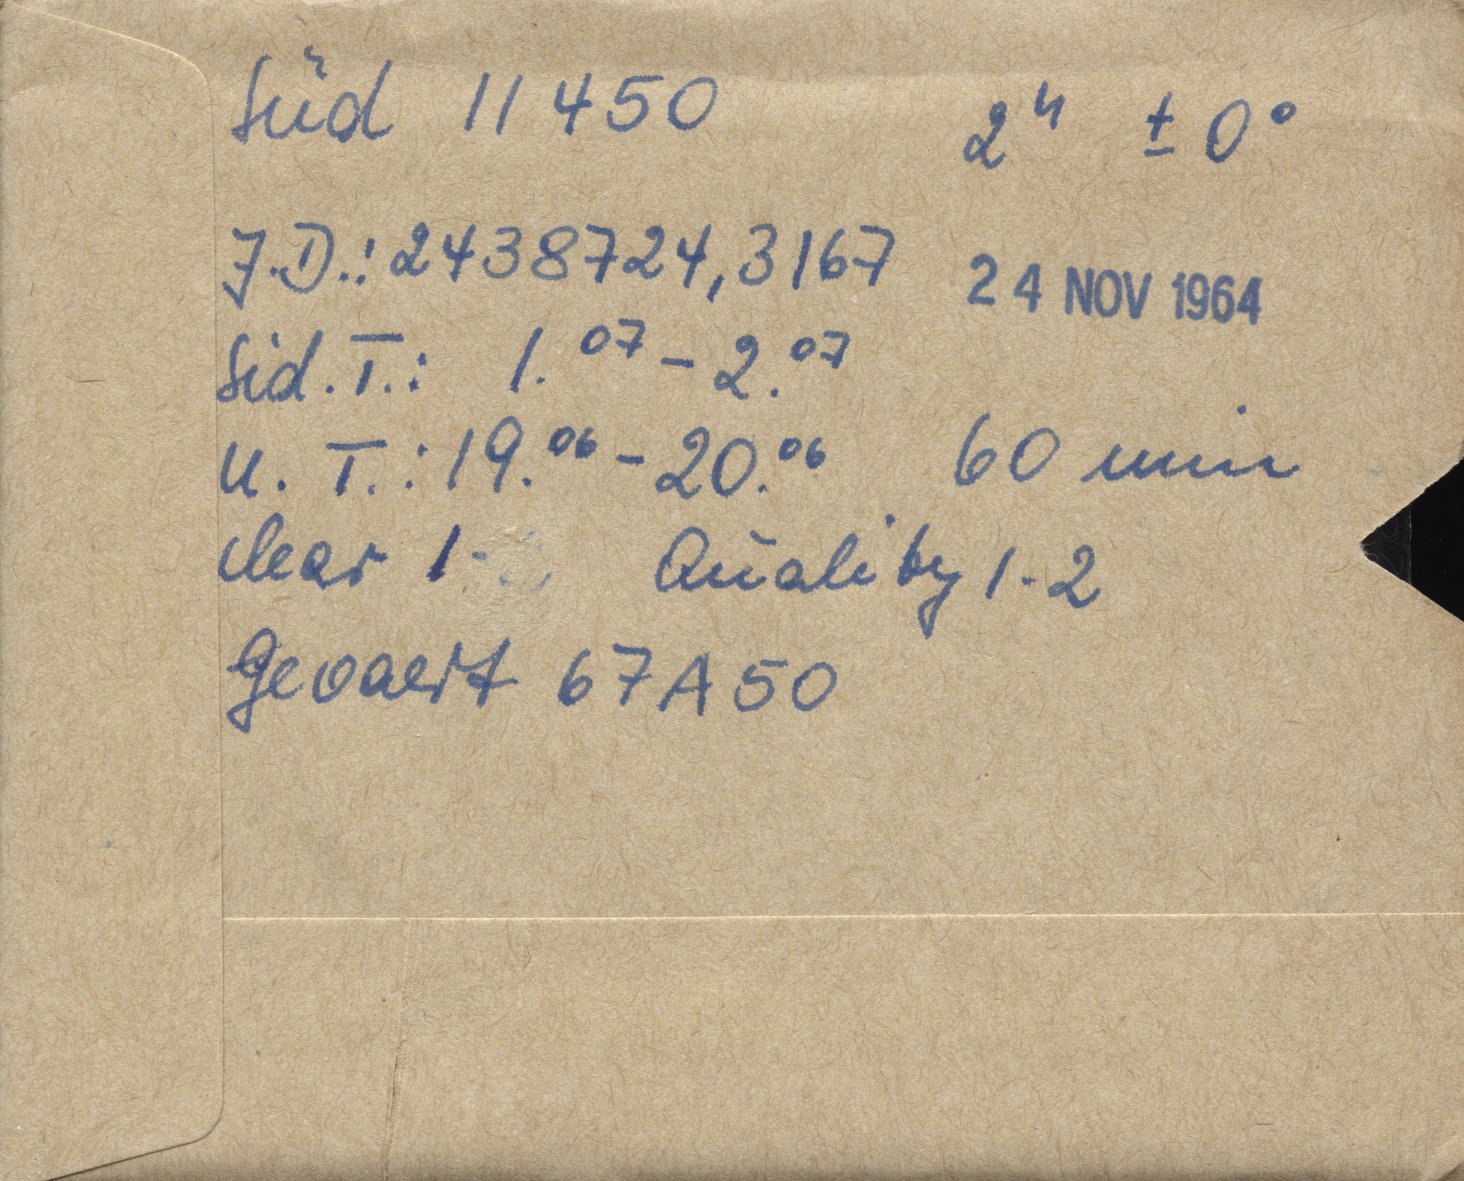 Süd 11450 2ʰ ± 0°
J.D.: 2438724,3167 24 NOV 1964
Sid. T.: 1.⁰⁷ - 2.⁰⁷
U. T.: 19.⁰⁶ - 20.⁰⁶ 60 min
clear 1- Quality 1-2
Gevaert 67A50